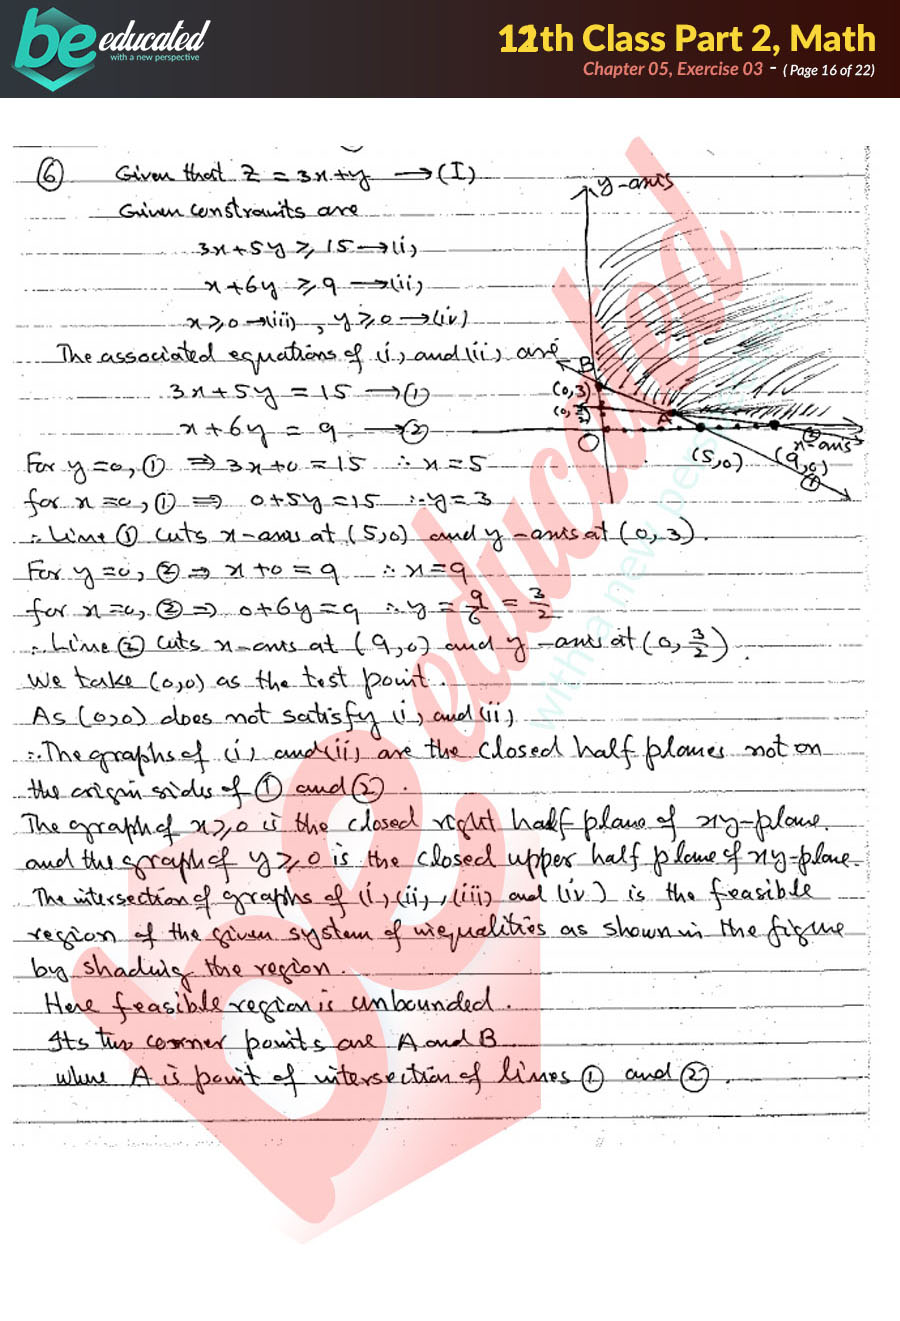 be educated
with a new perspective
12th Class Part 2, Math
Chapter 05, Exercise 03 - ( Page 16 of 22)
⑥ Given that Z = 3x+y → (I)
Given constraints are
3x+5y ≥ 15 → (i)
x+6y ≥ 9 → (ii)
x ≥ 0 → (iii) , y ≥ 0 → (iv)
The associated equations of (i) and (ii) are
3x+5y = 15 → ①
x+6y = 9 → ②
For y=0, ① ⇒ 3x+0 = 15 ∴ x=5
for x=0, ① ⇒ 0+5y=15 ∴ y=3
∴ Line ① cuts x-axis at (5,0) and y-axis at (0,3).
For y=0, ② ⇒ x+0 = 9 ∴ x=9
for x=0, ② ⇒ 0+6y=9 ∴ y = 9/6 = 3/2
∴ Line ② cuts x-axis at (9,0) and y-axis at (0, 3/2).
We take (0,0) as the test point.
As (0,0) does not satisfy (i) and (ii)
∴ The graphs of (i) and (ii) are the closed half planes not on
the origin sides of ① and ②.
The graph of x ≥ 0 is the closed right half plane of xy-plane.
and the graph of y ≥ 0 is the closed upper half plane of xy-plane.
The intersection of graphs of (i), (ii), (iii) and (iv) is the feasible
region of the given system of inequalities as shown in the figure
by shading the region.
Here feasible region is unbounded.
Its two corner points are A and B
where A is point of intersection of lines ① and ②.
y-axis
B
(0,3)
(0,3/2)
A
O
(5,0)
(9,0)
x-axis
②
①
be educated
with a new pers